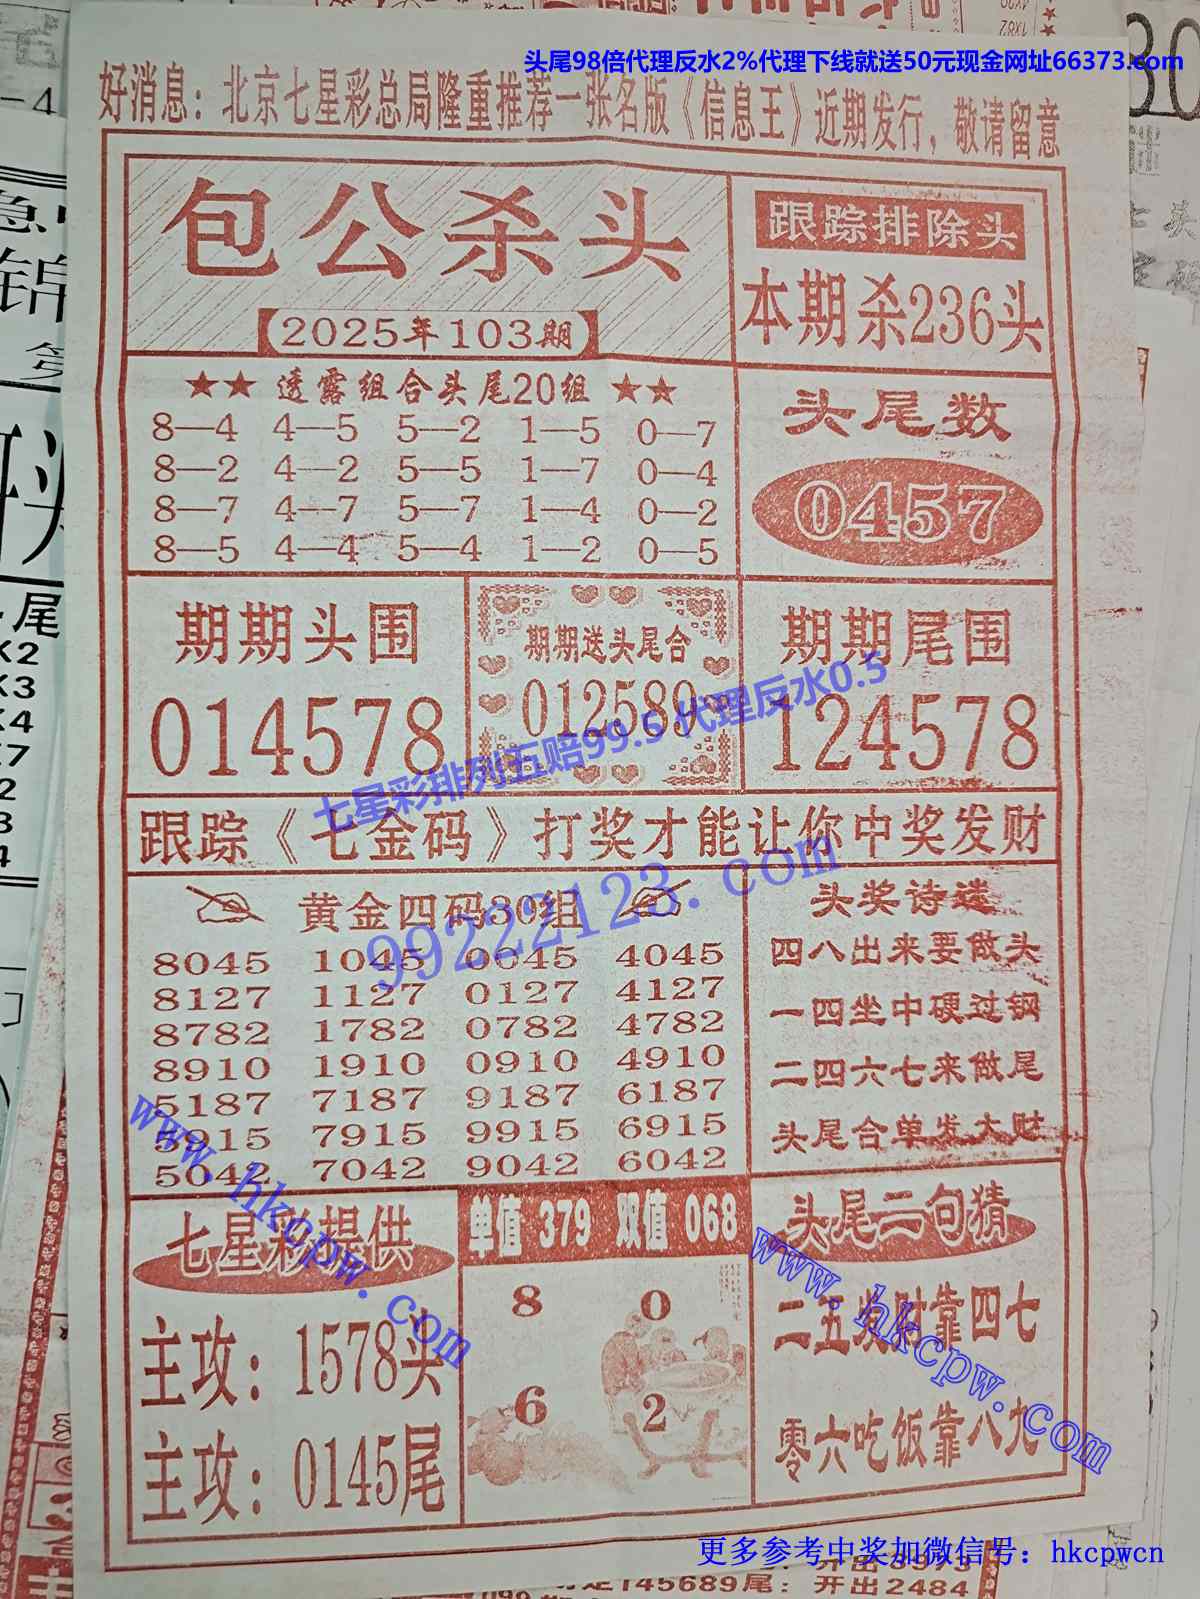 头尾98倍代理反水2%代理下线就送50元现金网址66373.com
好消息：北京七星彩总局隆重推荐一张名版《信息王》近期发行，敬请留意
包公杀头
2025年103期
跟踪排除头
本期杀236头
★★ 透露组合头尾20组 ★★
8—4 4—5 5—2 1—5 0—7
8—2 4—2 5—5 1—7 0—4
8—7 4—7 5—7 1—4 0—2
8—5 4—4 5—4 1—2 0—5
头尾数
0457
期期头围
014578
期期送头尾合
012589
期期尾围
124578
七星彩排列五赔99.5 代理反水0.5
跟踪《七金码》打奖才能让你中奖发财
99222123.com
黄金四码30组
8045 1045 0045 4045
8127 1127 0127 4127
8782 1782 0782 4782
8910 1910 0910 4910
5187 7187 9187 6187
5915 7915 9915 6915
5042 7042 9042 6042
头奖诗选
四八出来要做头
一四坐中硬过钢
二四六七来做尾
头尾合单发大财
www.hkcpw.com
七星彩提供
主攻：1578头
主攻：0145尾
单值 379 双值 068
8 0
6 2
头尾二句猜
二五发财靠四七
零六吃饭靠八九
www.hkcpw.com
更多参考中奖加微信号：hkcpwcn
145689尾：开出2484